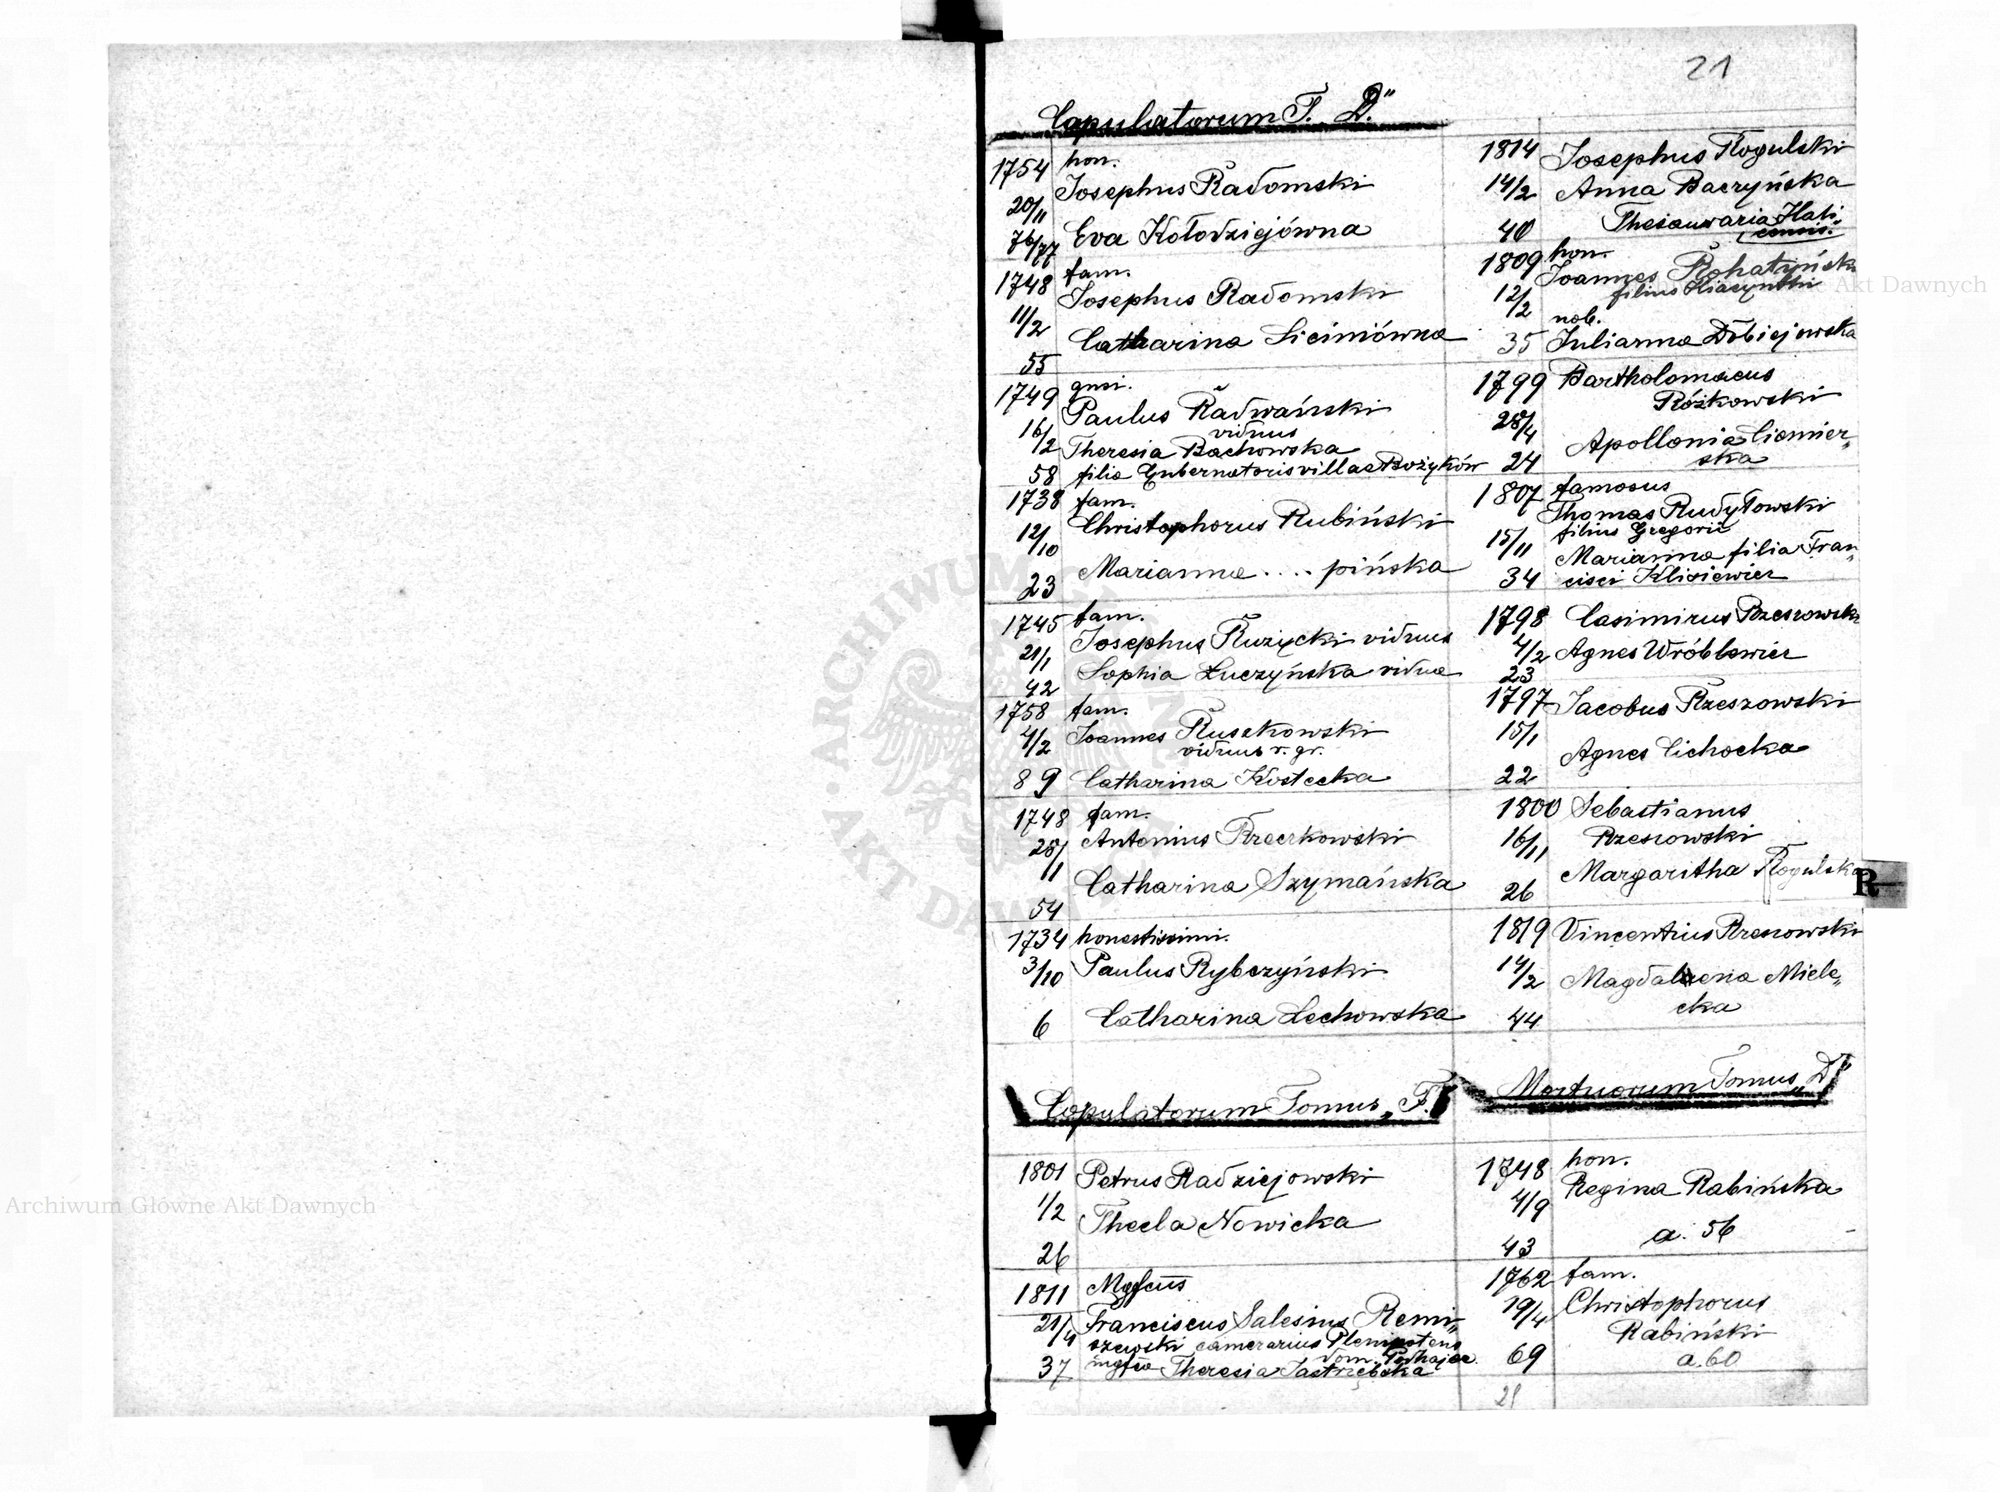 21
Copulatorum T. „D."
1754 hon.
Josephus Radomski
20/11
76/77 Eva Kołodziejówna
1748 fam.
Josephus Radomski
11/2
Catharina Siciniówna
55
1749 gnsi.
Paulus Radwański
16/2 viduus
Theresia Bachowska
58 filia Gubernatoris villae Bożyków
1738 fam.
Christophorus Rubiński
12/10
Marianna .... pińska
23
1745 fam.
Josephus Rużycki viduus
21/1
Sophia Łuczyńska vidua
42
1758 fam.
Joannes Ruszkowski
4/2 viduus r. gr.
89 Catharina Kostecka
1748 fam.
Antonius Rzeczkowski
28/11
Catharina Szymańska
54
1734 honestissimi.
3/10 Paulus Rybczyński
6 Catharina Lechowska
Copulatorum Tomus „F."
1801 Petrus Radziejowski
1/2
Thecla Nowicka
26
1811 Mgfcus
21/4 Franciscus Salesius Remi„
szewski camerarius Plenipotens
dom. Podhajec.
37 mgfca Theresia Jastrzębska
1814 Josephus Rogulski
14/2 Anna Baczyńska
40 Thesauraria Hali„
censis.
1809 hon.
Joannes Rohatyński
12/2 filius Hiacynthi
nob.
35 Julianna Dobiejowska
1799 Bartholomaeus
Różkowski
28/4
Apollonia Ciemier„
24 ska
1807 famosus
Thomas Rudyłowski
15/11 filius Gregorii
Marianna filia Fran„
34 cisci Klisiewicz
1798 Casimirus Rzeszowski
4/2 Agnes Wróblewicz
23
1797 Jacobus Rzeszowski
15/1
22 Agnes Cichocka
1800 Sebastianus
16/11 Rzeszowski
26 Margaritha Rogulska
R
1819 Vincentius Rzeszowski
14/2
Magdalena Miele„
44 cka
Mortuorum Tomus „D"
1748 hon.
4/9 Regina Rabińska
43 a. 56
1762 fam.
19/4 Christophorus
Rabiński
69 a. 60
21
Archiwum Główne Akt Dawnych
Akt Dawnych
ARCHIWUM GŁÓWNE AKT DAWNYCH